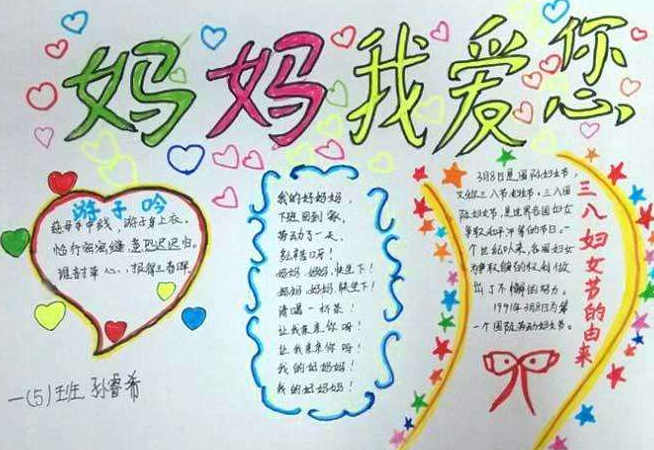 妈妈我爱您
游子吟
慈母手中线,游子身上衣。
临行密密缝,意恐迟迟归。
谁言寸草心,报得三春晖。
一(5)班 孙睿希
我的好妈妈,
下班回到家,
劳动了一天,
多么辛苦呀!
妈妈,妈妈,快坐下!
妈妈,妈妈,快坐下!
请喝一杯茶!
让我亲亲你呀!
让我亲亲你呀!
我的好妈妈!
我的好妈妈!
三八妇女节的由来
3月8日是国际妇女节,
又称三八节
三八国
际妇女节,是世界各国妇女
争取和平
的节日。一
个世纪以来,各国妇女
为争取
的权利做
出了不懈的努力。
一个国际劳动妇女节。